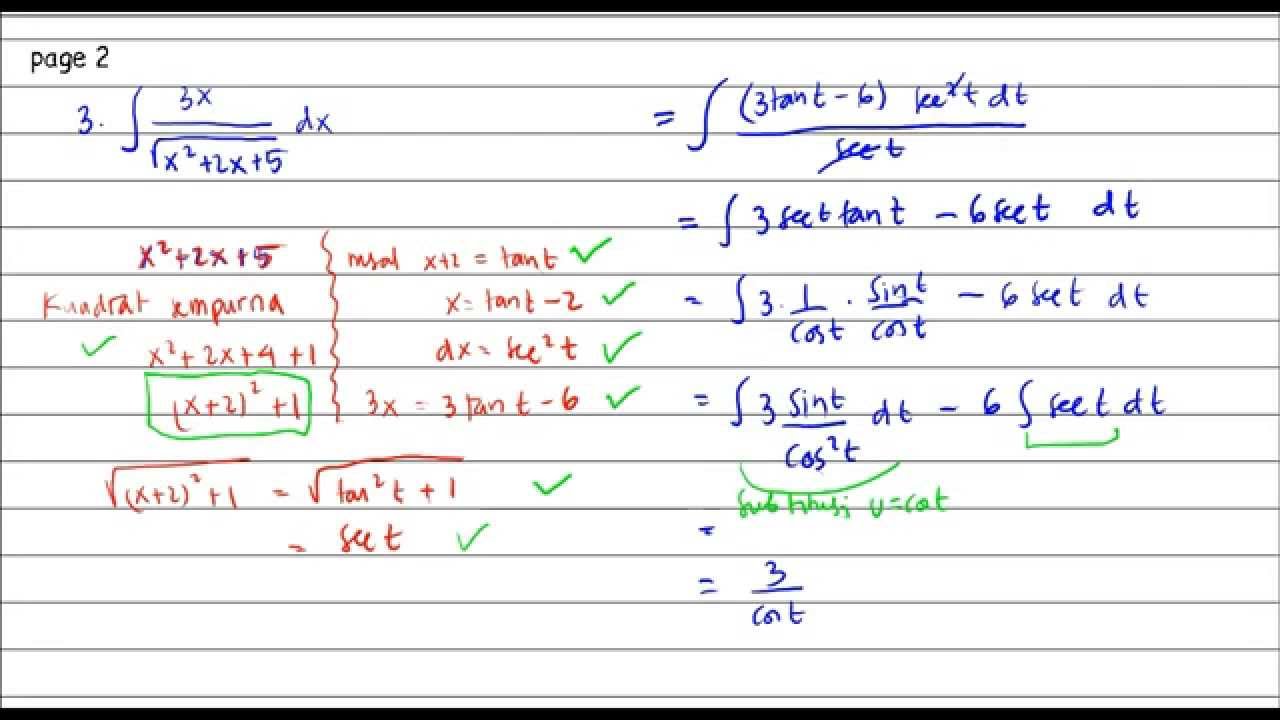 page 2
3. ∫ 3x / √(x²+2x+5) dx
x²+2x+5
Kuadrat sempurna
✓ x²+2x+4+1
(x+2)²+1
misal x+2 = tan t ✓
x = tan t - 2 ✓
dx = sec² t ✓
3x = 3 tan t - 6 ✓
√((x+2)²+1) = √(tan² t + 1) ✓
= sec t ✓
= ∫ (3 tan t - 6) sec² t dt / sec t
= ∫ 3 sec t tan t - 6 sec t dt
= ∫ 3 · 1/cos t · sin t/cos t - 6 sec t dt
= ∫ 3 sin t / cos² t dt - 6 ∫ sec t dt
substitusi u = cos t
=
= 3 / cos t